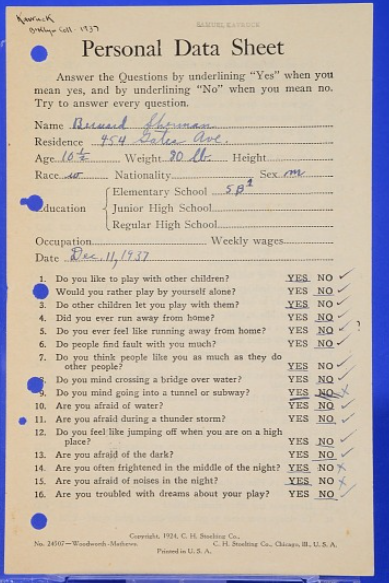 Karnick
Bklyn Coll - 1937
SAMUEL KAVRUCK
Personal Data Sheet
Answer the Questions by underlining "Yes" when you
mean yes, and by underlining "No" when you mean no.
Try to answer every question.
Name Bernard Sherman
Residence 954 Gates Ave.
Age 10 ½ Weight 80 lb. Height
Race w Nationality Sex m
Education
Elementary School 5B¹
Junior High School
Regular High School
Occupation Weekly wages
Date Dec. 11, 1937
1. Do you like to play with other children? YES NO
2. Would you rather play by yourself alone? YES NO
3. Do other children let you play with them? YES NO
4. Did you ever run away from home? YES NO
5. Do you ever feel like running away from home? YES NO ?
6. Do people find fault with you much? YES NO
7. Do you think people like you as much as they do
other people? YES NO
8. Do you mind crossing a bridge over water? YES NO
9. Do you mind going into a tunnel or subway? YES NO
10. Are you afraid of water? YES NO
11. Are you afraid during a thunder storm? YES NO
12. Do you feel like jumping off when you are on a high
place? YES NO
13. Are you afraid of the dark? YES NO
14. Are you often frightened in the middle of the night? YES NO
15. Are you afraid of noises in the night? YES NO
16. Are you troubled with dreams about your play? YES NO
Copyright, 1924, C. H. Stoelting Co.,
No. 24507—Woodworth-Mathews. C. H. Stoelting Co., Chicago, Ill., U. S. A.
Printed in U. S. A.